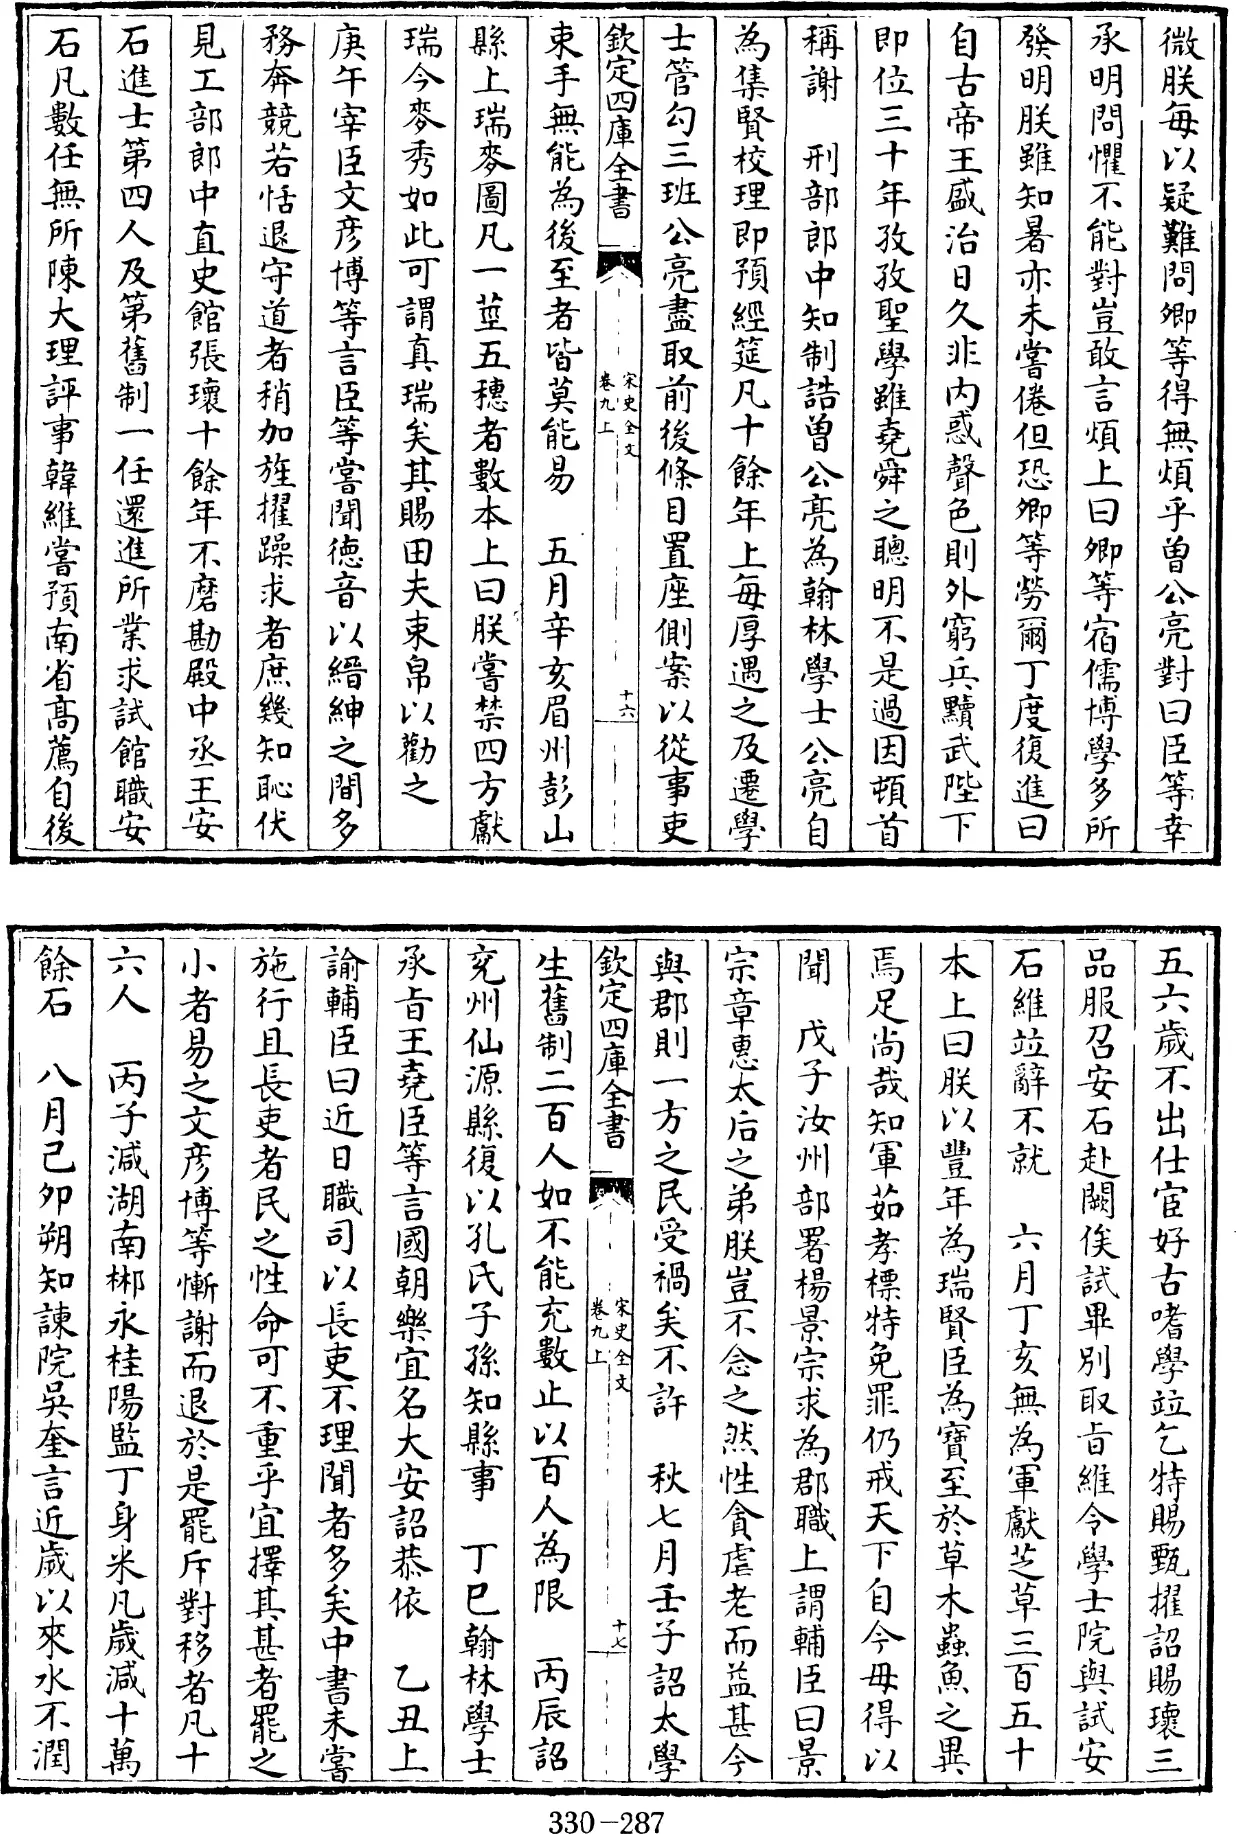 微朕每以疑難問卿等得無煩乎曾公亮對曰臣等幸
承明問懼不能對豈敢言煩上曰卿等宿儒博學多所
發明朕雖知暑亦未嘗倦但恐卿等勞爾丁度復進曰
自古帝王盛治日久非内惑聲色則外窮兵黷武陛下
即位三十年孜孜聖學雖堯舜之聰明不是過因頓首
稱謝　刑部郎中知制誥曾公亮為翰林學士公亮自
為集賢校理即預經筵凡十餘年上每厚遇之及遷學
士管勾三班公亮盡取前後條目置座側案以從事吏
欽定四庫全書
宋史全文
卷九上
十六
束手無能為後至者皆莫能易　五月辛亥眉州彭山
縣上瑞麥圖凡一莖五穗者數本上曰朕嘗禁四方獻
瑞今麥秀如此可謂真瑞矣其賜田夫束帛以勸之
庚午宰臣文彦博等言臣等嘗聞徳音以縉紳之間多
務奔競若恬退守道者稍加旌擢躁求者庶幾知恥伏
見工部郎中直史館張瓌十餘年不磨勘殿中丞王安
石進士第四人及第舊制一任還進所業求試館職安
石凡數任無所陳大理評事韓維嘗預南省高薦自後
五六歳不出仕宦好古嗜學竝乞特賜甄擢詔賜瓌三
品服召安石赴闕俟試畢别取旨維令學士院與試安
石維竝辭不就　六月丁亥無為軍獻芝草三百五十
本上曰朕以豐年為瑞賢臣為寶至於草木蟲魚之異
焉足尚哉知軍茹孝標特免罪仍戒天下自今毋得以
聞　戊子汝州部署楊景宗求為郡職上謂輔臣曰景
宗章惠太后之弟朕豈不念之然性貪虐老而益甚今
與郡則一方之民受禍矣不許　秋七月壬子詔太學
欽定四庫全書
宋史全文
卷九上
十七
生舊制二百人如不能充數止以百人為限　丙辰詔
兗州仙源縣復以孔氏子孫知縣事　丁巳翰林學士
承旨王堯臣等言國朝樂宜名大安詔恭依　乙丑上
諭輔臣曰近日職司以長吏不理聞者多矣中書未嘗
施行且長吏者民之性命可不重乎宜擇其甚者罷之
小者易之文彦博等慚謝而退於是罷斥對移者凡十
六人　丙子減湖南郴永桂陽監丁身米凡歳減十萬
餘石　八月己卯朔知諫院吳奎言近歳以來水不潤
330-287